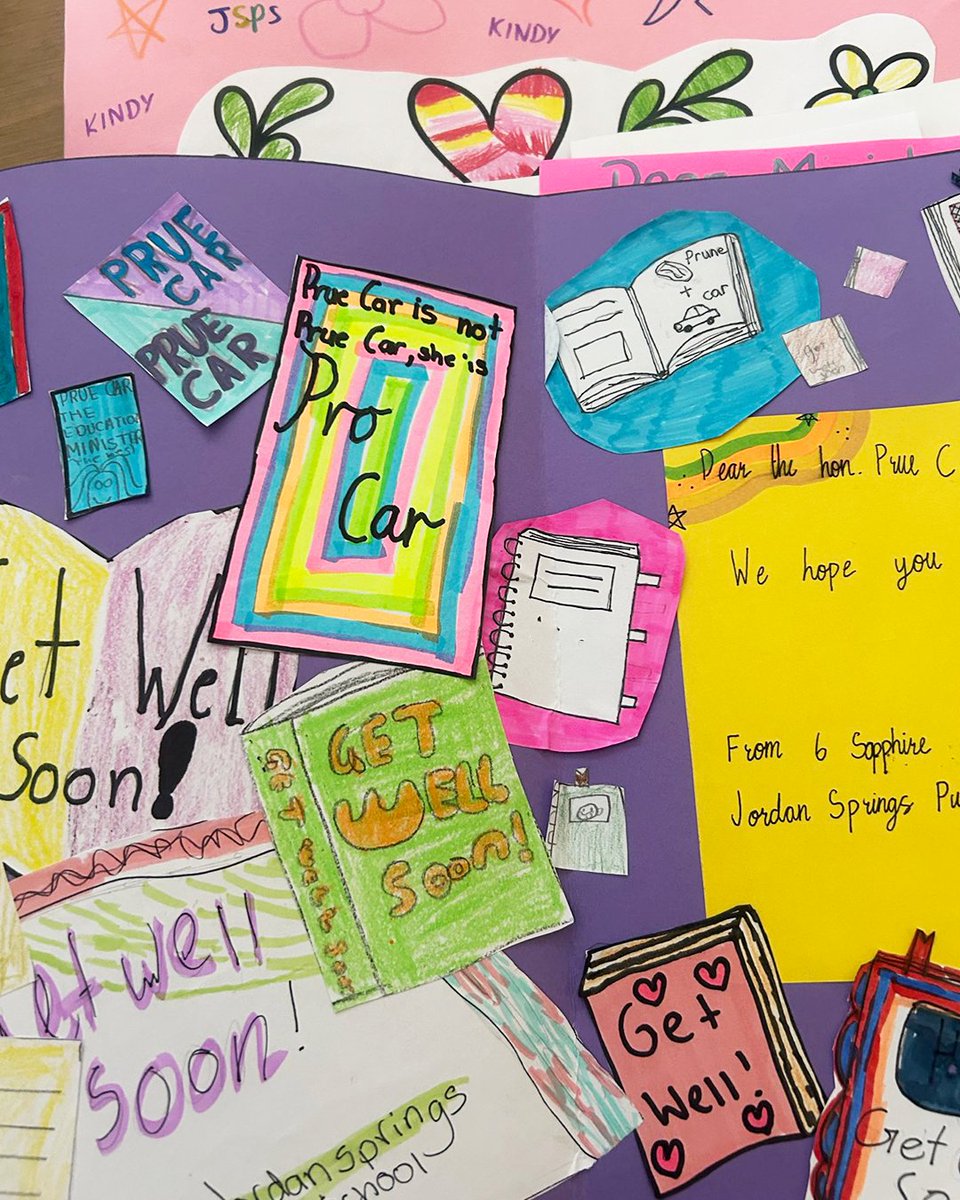 JSPS
KINDY
KINDY
PRUE
CAR
PRUE
CAR
PRUE CAR
THE
EDUCATION
MINISTER
the best
Prue Car is not
Prue Car, she is
Pro
Car
Prune
+
car
get
well
soon
Dear the hon. Prue C
We hope you
From 6 Sapphire
Jordan Springs Pu
et Well
Soon!
GET
WELL
Soon!
GET well Soon
et well
soon!
Jordan springs
school
Get
Well!
Get